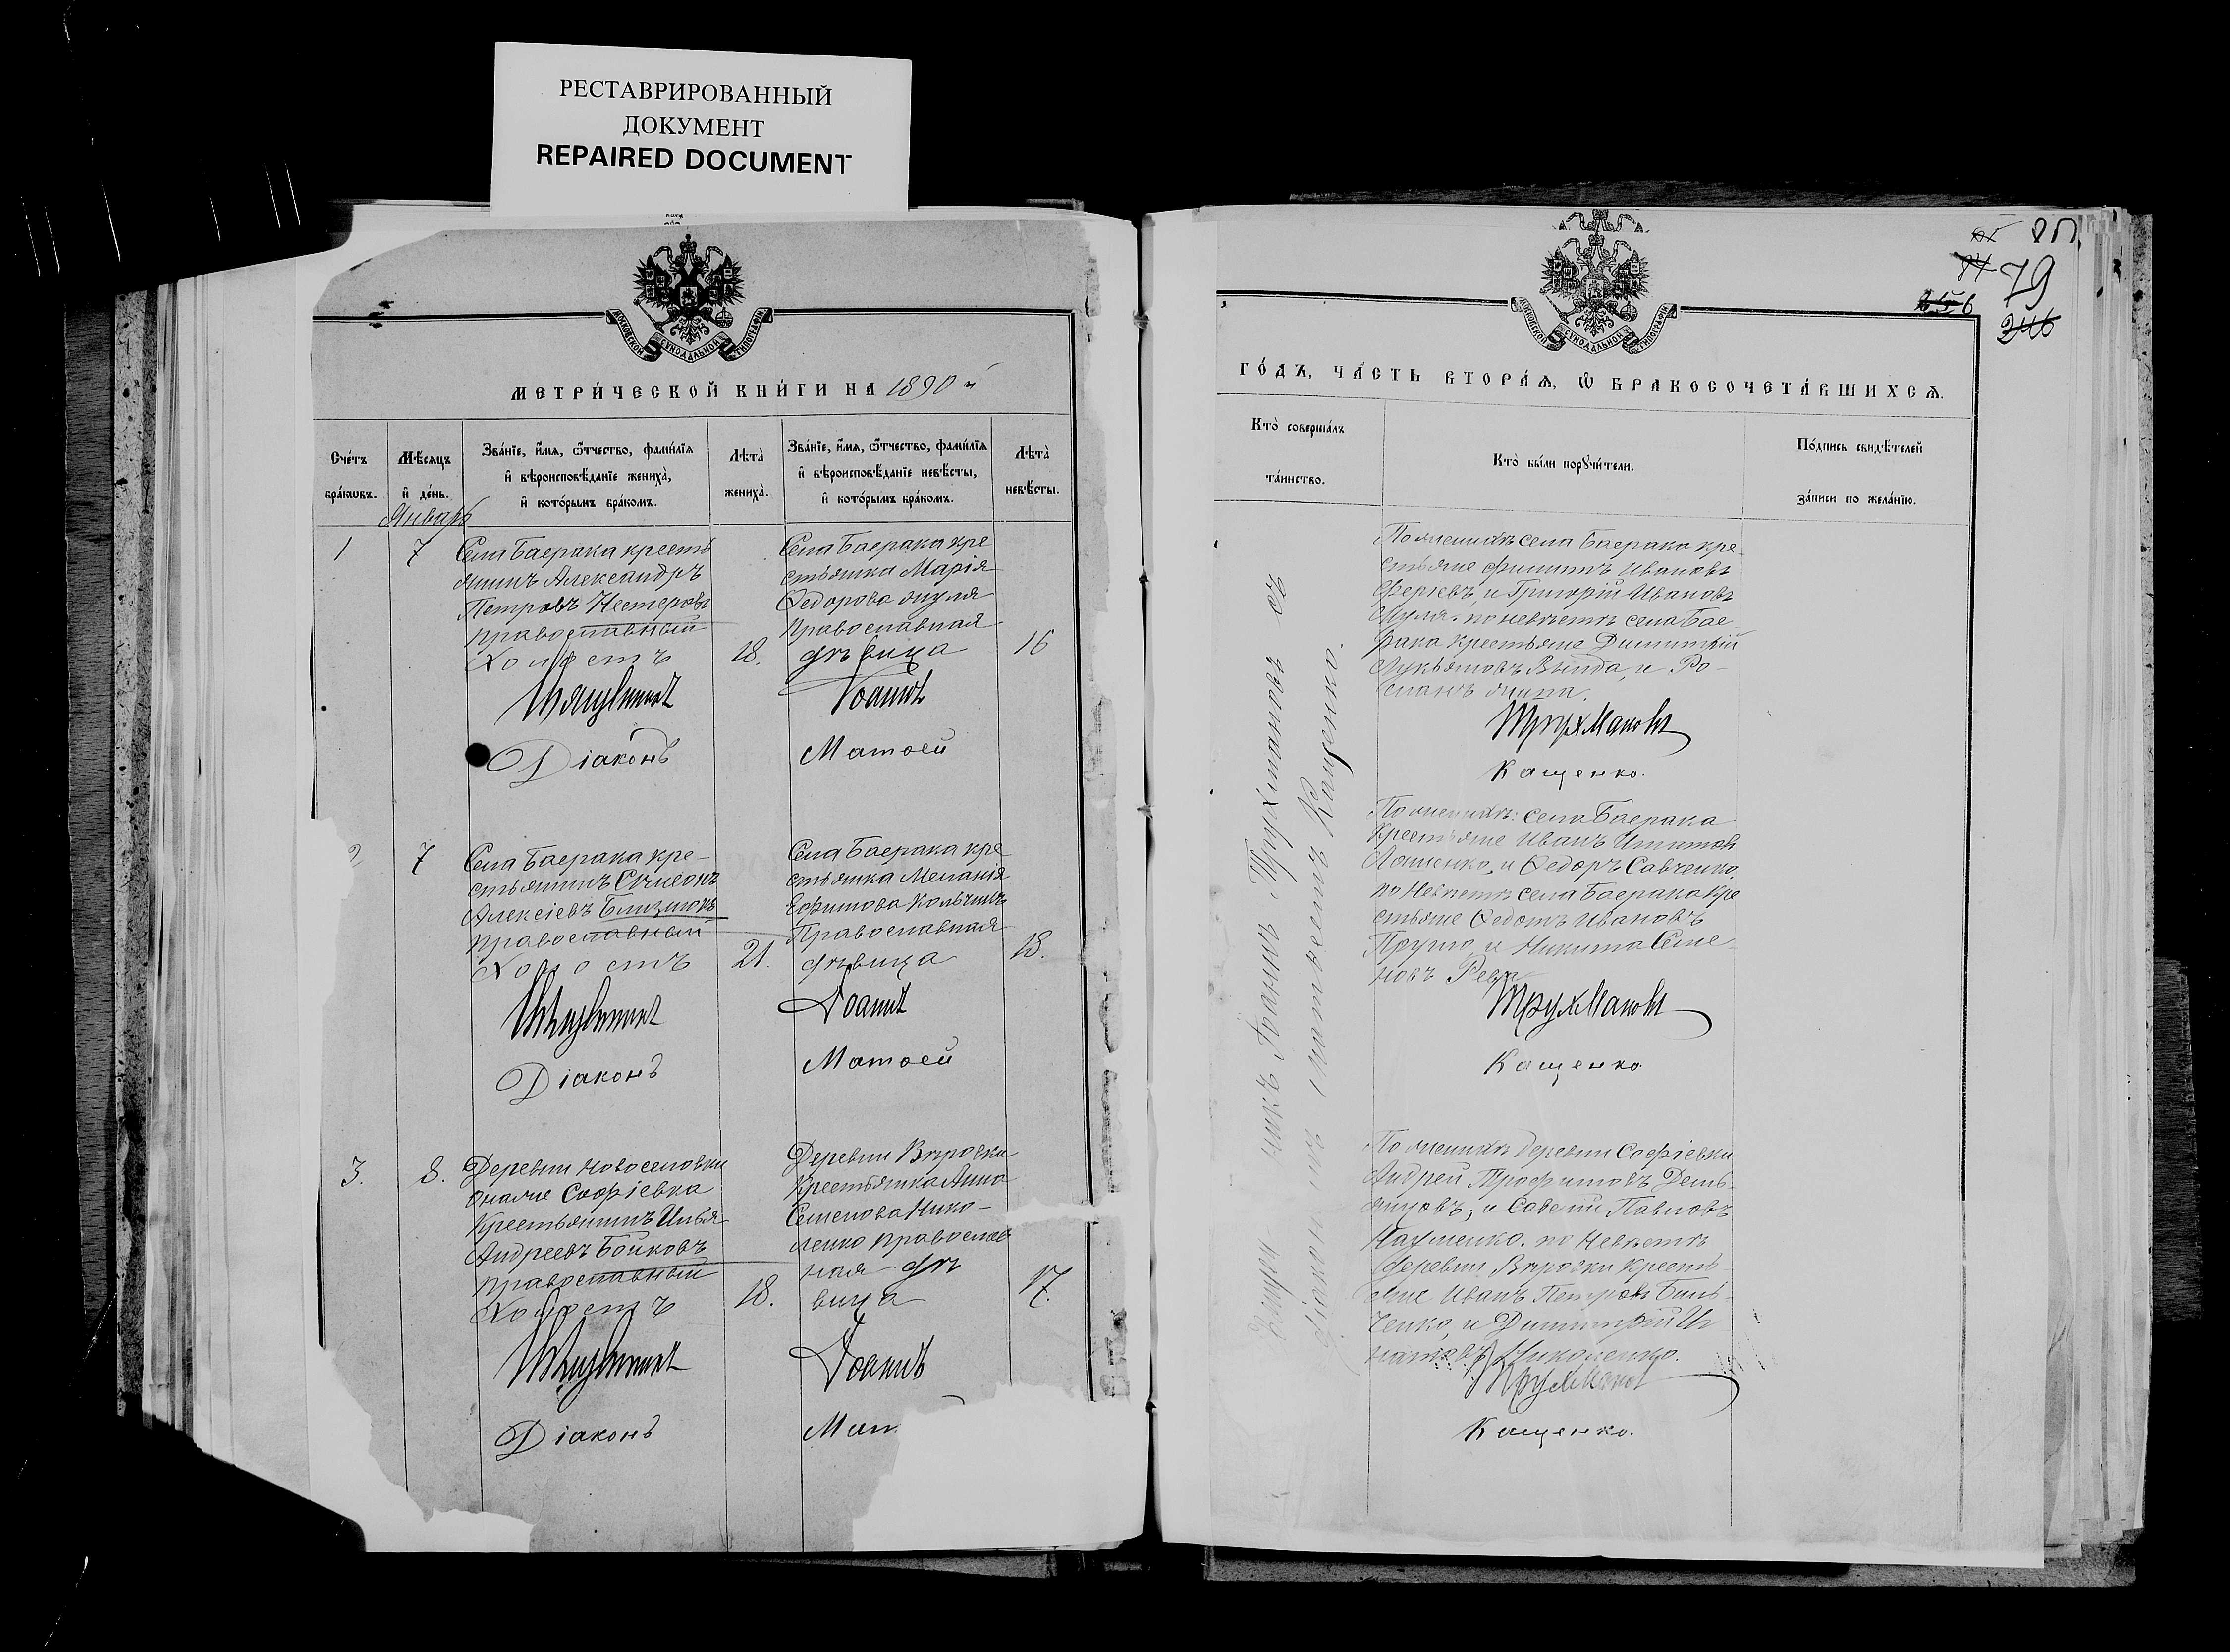 РЕСТАВРИРОВАННЫЙ
ДОКУМЕНТ
REPAIRED DOCUMENT
МОСКОВСКОЙ СѴНОДАЛЬНОЙ ТИПОГРАФІИ
МЕТРИ́ЧЕСКОЙ КНИ́ГИ НА 1890 й
Сче́тъ бра́кѡвъ.
Мѣ́сѧцъ и҆ де́нь.
Зва́нїе, и҆́мѧ, ѻ҆́тчество, фами́лїѧ
и҆ вѣроисповѣ́данїе жениха̀,
и҆ кото́рымъ бра́комъ.
Лѣ́та̀ жениха̀.
Зва́нїе, и҆́мѧ, ѻ҆́тчество, фами́лїѧ
и҆ вѣроисповѣ́данїе невѣ́сты,
и҆ кото́рымъ бра́комъ.
Лѣ́та̀ невѣ́сты.
Январь
1
7
Села Баерака кресть
янинъ Александръ
Петровъ Нестеровъ
православный
Холостъ
18.
Села Баерака кре
стьянка Марія
Ѳедорова
Православная
дѣвица
16
Священникъ Іоаннъ
Діаконъ Матѳей
2
7
Села Баерака кре-
стьянинъ Сѵмеонъ
Алексіевъ Близнюкъ
православный
Холостъ
21.
Села Баерака кре
стьянка Меланія
Ефимова
Православная
дѣвица
18.
Священникъ Іоаннъ
Діаконъ Матѳей
3.
8.
Деревни Новоселовки
онаже Софіевка
Крестьянинъ Илья
Андреевъ Бойковъ
православный
Холостъ
18.
Деревни Вѣровки
Крестьянка Анна
Семенова Нико-
ленко православ
ная дѣ
вица
17.
Священникъ Іоаннъ
Діаконъ Мат
79
ГО́ДЪ, ЧА́СТЬ ВТОРА́Ѧ, Ѽ БРАКОСОЧЕТА́ВШИХСѦ.
МОСКОВСКОЙ СѴНОДАЛЬНОЙ ТИПОГРАФІИ
Кто̀ соверша́лъ
та́инство.
Кто̀ бы́ли порꙋчи́тели.
По́дпись свидѣ́телей
за́писи по жела́нїю.
Іоаннъ Трухмановъ съ
Матѳеемъ Кащенко.
По женихѣ села Баерака кре-
стьяне Филиппъ Ивановъ
и Григорій Ивановъ
по невѣстѣ села Бае-
рака крестьяне Димитрій
Лукьяновъ и Ро-
манъ
Трухмановъ
Кащенко.
По женихѣ: села Баерака
Крестьяне Иванъ
и Ѳедоръ Савченко.
по Невѣстѣ села Баерака кре
стьяне Ѳедотъ Ивановъ
и Никита Семе-
новъ Рева
Трухмановъ
Кащенко.
По женихѣ деревни Софіевки
Андрей Трофимовъ Демь-
яновъ, и Савелій Павловъ
Науменко. по Невѣстѣ
деревни Вѣровки Кресть-
яне Иванъ Петровъ Биль-
ченко, и Димитрій Иг
натовъ Николенко.
Трухмановъ
Кащенко.